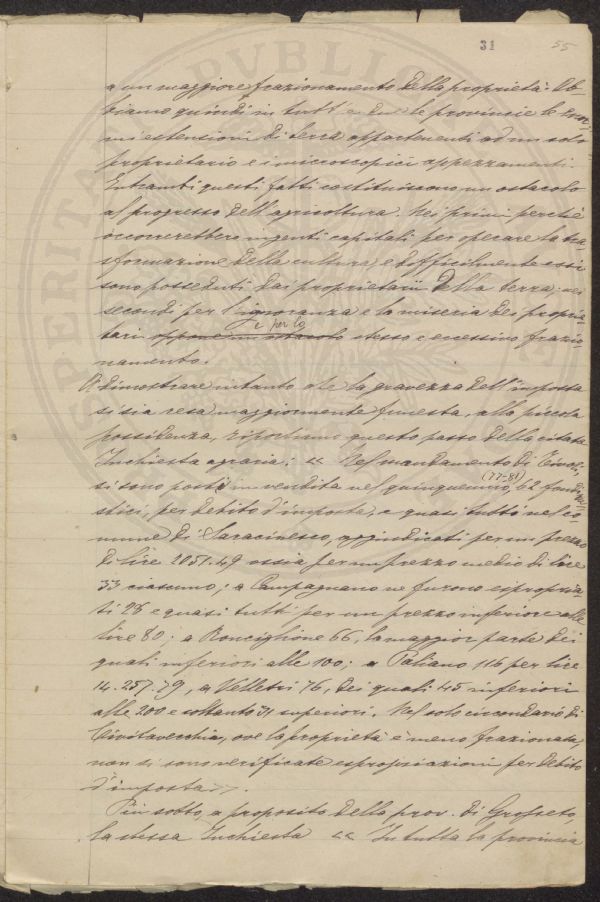 31 55
a un maggiore frazionamento della proprietà. Ab-
biamo quindi in tutt'e due le provincie le enor-
mi estensioni di terra appartenenti ad un solo
proprietario e i microscopici appezzamenti.
Entrambi questi fatti costituiscono un ostacolo
al progresso dell'agricoltura. Nei primi perchè
occorrerebbero ingenti capitali per operare la tra-
sformazione della cultura, e difficilmente essi
sono posseduti dai proprietarii della terra, nei
secondi per l'ignoranza e la miseria dei proprie-
e per lo
tari stesso e eccessivo frazio-
namento.
A dimostrare intanto che la gravezza dell'imposta
si sia resa maggiormente funesta, alla piccola
possidenza, riportiamo questo passo della citata
Inchiesta agraria: << Nel mandamento di Tivoli
(77-81)
si sono posti in vendita nel quinquennio, 62 fondi
stici, per debito d'imposte, e quasi tutti nel co-
mune di Saracinesco, aggiudicati per un prezzo
di lire 2051.49 ossia per un prezzo medio di lire
33 ciascuno; a Campagnano ne furono espropria-
ti 28 e quasi tutti per un prezzo inferiore alle
lire 80; a Ronciglione 66, la maggior parte dei
quali inferiori alle 100; a Paliano 116 per lire
14.257.79, a Velletri 76, dei quali 45 inferiori
alle 200 e soltanto 31 superiori. Nel solo circondario di
Civitavecchia, ove la proprietà è meno frazionata,
non si sono verificate espropriazioni per debito
d'imposta >>.
Più sotto, a proposito della prov. di Grosseto,
la stessa Inchiesta << In tutta la provincia